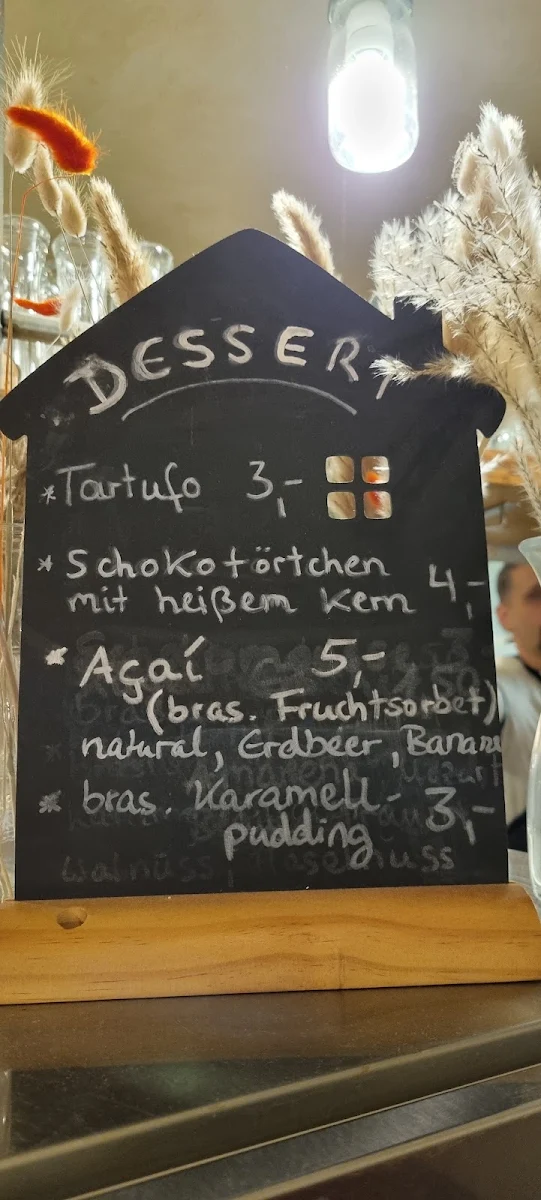 DESSERT
* Tartufo 3,-
* Schokotörtchen
mit heißem Kern 4,-
* Açaí 5,-
(bras. Fruchtsorbet)
natural, Erdbeer, Banane
* bras. Karamell- 3,-
pudding
walnuss, Haselnuss